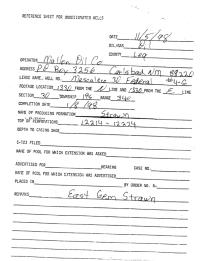 REFERENCE SHEET FOR UNDESIGNATED WELLS
DATE 11/5/98
OIL/GAS Oil
COUNTY Lea
OPERATOR Matton Oil Co
ADDRESS P.O. Box 3256 Carlsbad NM 88220
LEASE NAME, WELL NO. Mescalero 30 Federal #4-C
FOOTAGE LOCATION 1330 FROM THE N LINE AND 1330 FROM THE E LINE
SECTION 30 TOWNSHIP 19s RANGE 34e
COMPLETION DATE 1/8/98
NAME OF PRODUCING FORMATION Strawn
TOP OF PERFORATIONS 12214 - 12224
DEPTH TO CASING SHOE
C-123 FILED
NAME OF POOL FOR WHICH EXTENSION WAS ASKED
ADVERTISED FOR HEARING CASE NO.
NAME OF POOL FOR WHICH EXTENSION WAS ADVERTISED
PLACED IN BY ORDER NO. R-
REMARKS East Gem Strawn